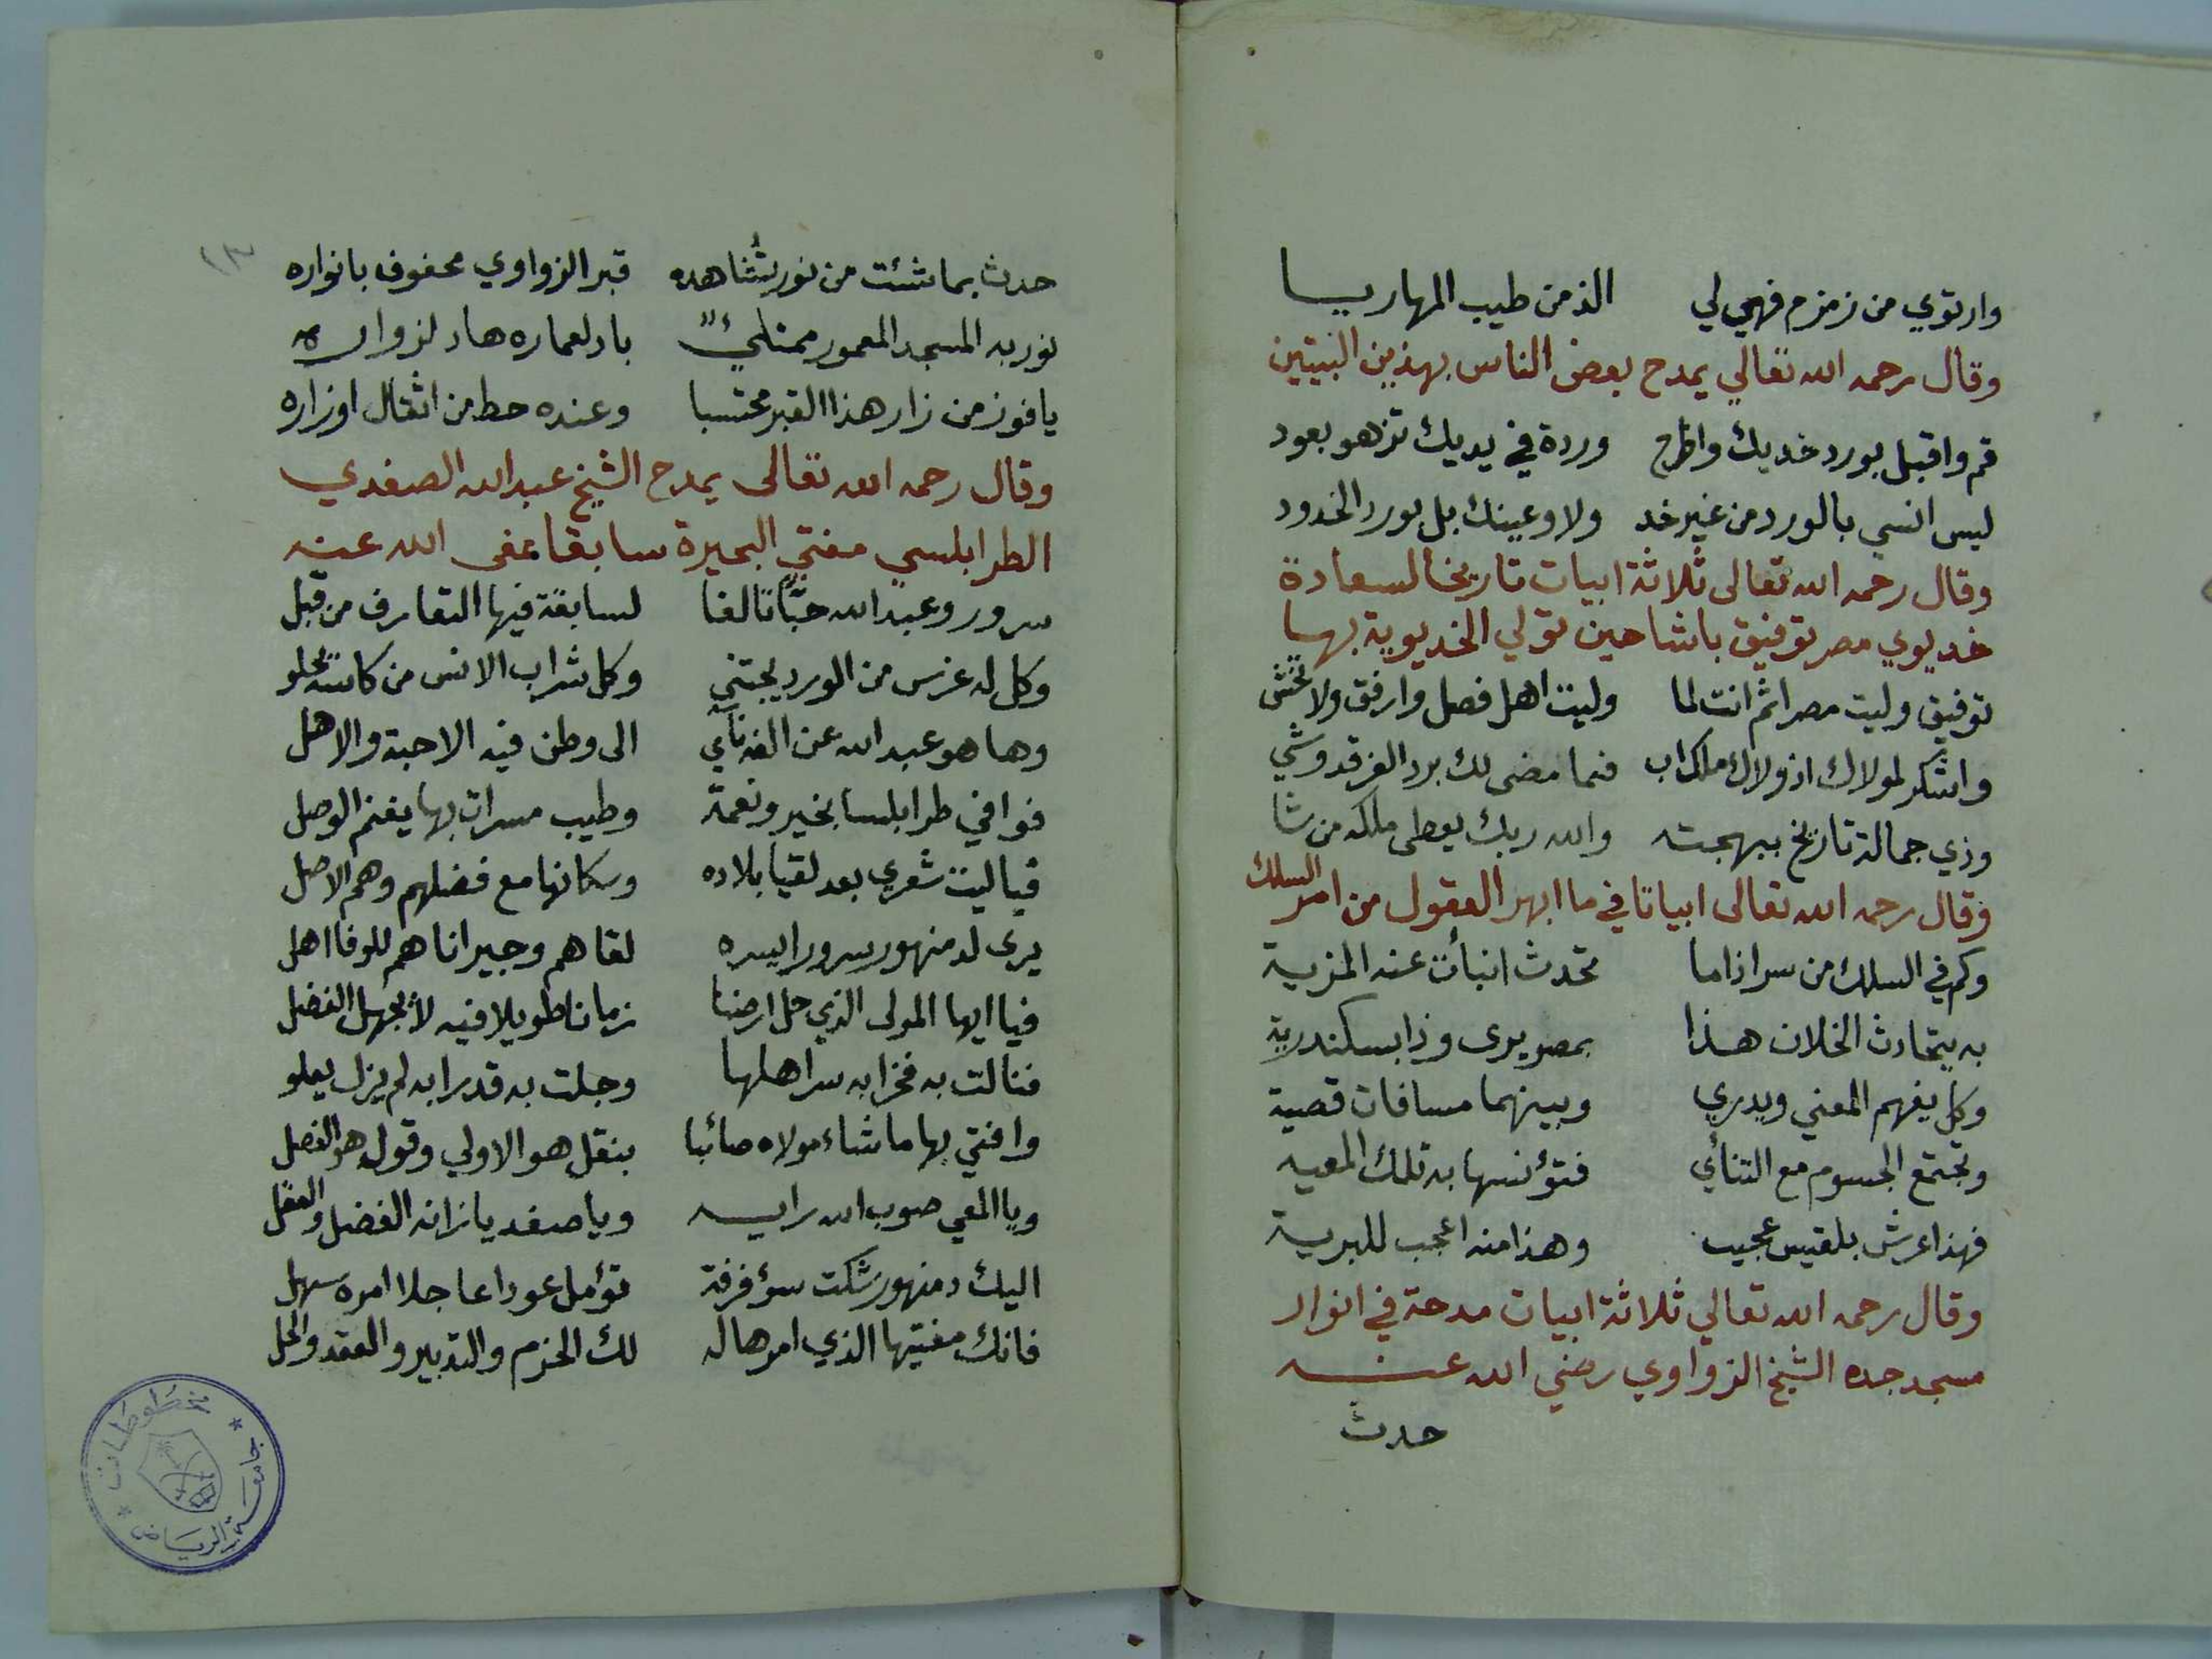 وارتوي من زمزم فهي لي الذ من طيب المهاريسا
وقال رحمه الله تعالي يمدح بعض الناس بهذين البيتين
قم واقبل بورد خديك واطرح وردة في يديك تزهو بعود
ليس انسي بالورد من غير خد ولا وعينك بل بورد الخدود
وقال رحمه الله تعالى ثلاثة ابيات تاريخا لسعادة
خديوي مصر توفيق باشا حين تولي الخديوية بها
توفيق وليت مصرا ثم انت لما وليت اهل فصل وارفق ولا تخش
واشكر لمولاك اذ ولاك ملك اب فما مضى لك برد الفرقد وشي
وذي جمالة تاريخ ببهجته والله ربك يعطى ملكه من شا
وقال رحمه الله تعالى ابياتا في ما ابهر العقول من امر السلك
وكم في السلك من سر اذا ما تحدث انبأت عنه المزية
به يتحادث الخلان هذا بمصر يرى وذا بسكندرية
وكل يفهم المعني ويدري وبينهما مسافات قصية
وتجتمع الجسوم مع التنأي فتؤنسها به تلك المعيه
فهذا عرش بلقيس عجيب وهذا منه اعجب للبرية
وقال رحمه الله تعالي ثلاثة ابيات مدحة في انوار
مسجد جده الشيخ الزواوي رضي الله عنه
حدث
١٣
حدث بما شئت من نور تُشاهده قبر الزواوي محفوف بانواره
نور به المسجد المعمور ممتلئ باد لعماره هاد لزواره
يا فوز من زار هذا القبر محتسبا وعنده حط من اثقال اوزاره
وقال رحمه الله تعالى يمدح الشيخ عبد الله الصفدي
الطرابلسي مفتي البحيرة سابقا عفى الله عنه
سرور وعبد الله حبًّا تالفا لسابقة فيها التعارف من قبل
وكل له غرس من الورد يجتني وكل شراب الانس من كاسه يحلو
وها هو عبد الله عن الفه نآي الى وطن فيه الاحبة والاهل
فوافي طرابلسا بخير ونعمة وطيب مسرات بها يغنم الوصل
فيا ليت شعري بعد لقيا بلاده وسكانها مع فضلهم وهم الاصل
يرى لدمنهور سرورا يسره لقاهم وجيرانا هم للوفا اهل
فيا ايها المولى الذي حل ارضنا زمانا طويلا فيه لا يجهل الفضل
فنالت به فخرا به سر اهلها وجلت به قدرا به لم يزل يعلو
وافتي بها ما شاء مولاه صائبا بنقل هو الاولي وقول هو الفصل
ويا المعي صوب الله رايه ويا صفديا زانه الفضل والعقل
اليك دمنهور شكت سؤ فرقة تؤمل عودا عاجلا امره سهل
فانك مفتيها الذي امرها له لك الحزم والتدبير والعقد والحل
مخطوطات
جامعة الرياض